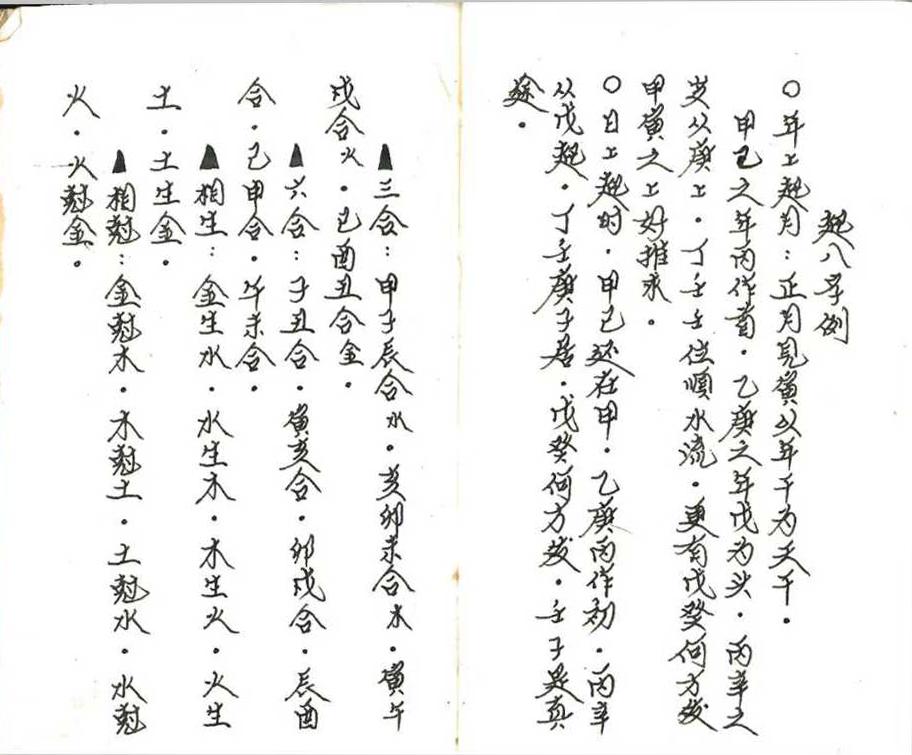 起八字例
○年上起月：正月見寅以年干为天干．
甲己之年丙作首．乙庚之年戊为头．丙辛之
岁从庚上．丁壬壬位順水流．更有戊癸何方发
甲寅之上好推求．
○日上起时．甲己还在甲．乙庚丙作初．丙辛
从戊起．丁壬庚子居．戊癸何方发．壬子是真
途．
▲三合：甲子辰合水．亥卯未合木．寅午
戍合火．巳酉丑合金．
▲六合：子丑合．寅亥合．卯戍合．辰酉
合．己申合．午未合．
▲相生：金生水．水生木．木生火．火生
土．土生金．
▲相尅：金尅木．木尅土．土尅水．水尅
火．火尅金。